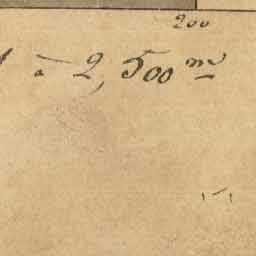 200
à 2,500 m